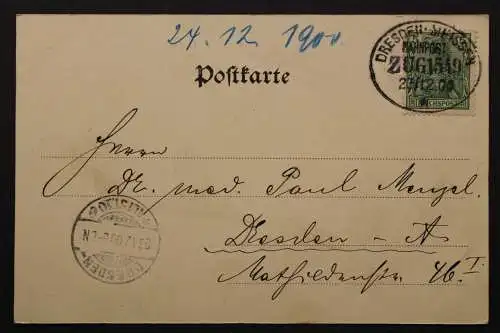 24. 12. 1900
Postkarte
DRESDEN-MEISSEN
BAHNPOST
ZUG 1549
Herrn
Dr. med. Paul Menzel.
Dresden – A
Mathildenstr. 46 I.
DRESDEN
ALTST.